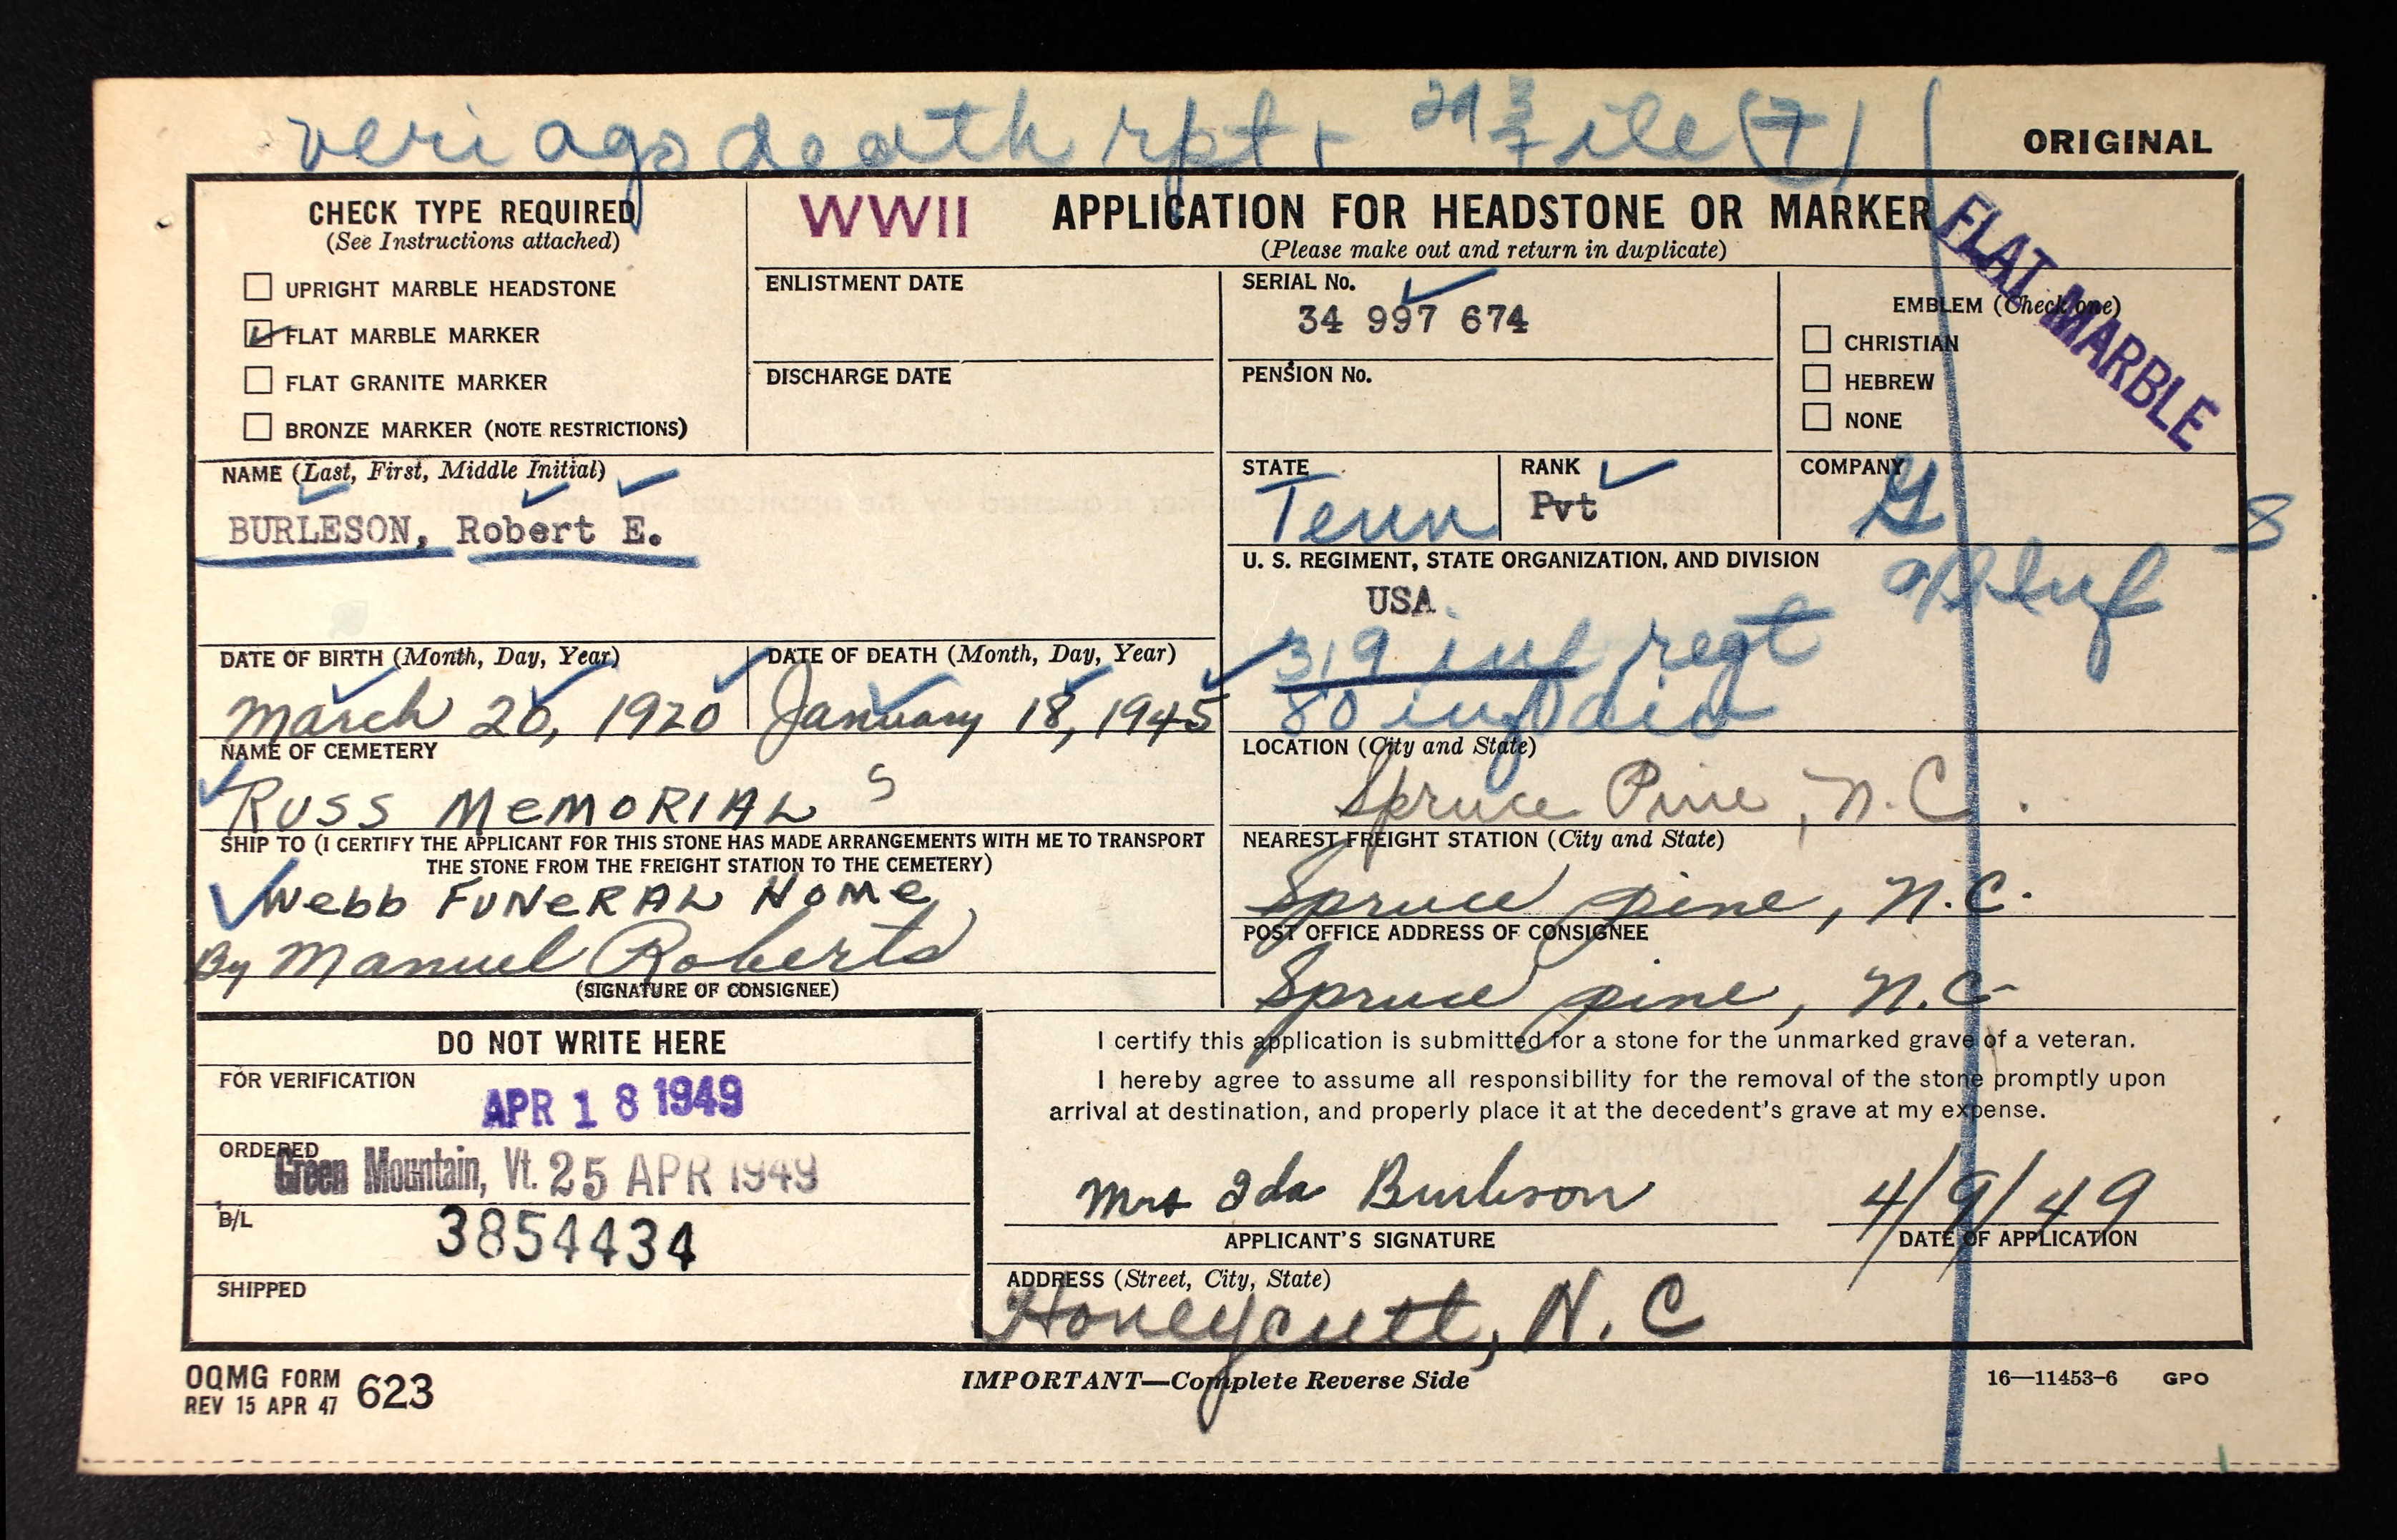 veri ago death rpt + 293 File (7)
ORIGINAL
CHECK TYPE REQUIRED
(See Instructions attached)
UPRIGHT MARBLE HEADSTONE
FLAT MARBLE MARKER
FLAT GRANITE MARKER
BRONZE MARKER (NOTE RESTRICTIONS)
WWII
APPLICATION FOR HEADSTONE OR MARKER
(Please make out and return in duplicate)
FLAT MARBLE
ENLISTMENT DATE
DISCHARGE DATE
SERIAL No.
34 997 674
PENSION No.
EMBLEM (Check one)
CHRISTIAN
HEBREW
NONE
NAME (Last, First, Middle Initial)
BURLESON, Robert E.
STATE
Tenn
RANK
Pvt
COMPANY
G
S
U. S. REGIMENT, STATE ORGANIZATION, AND DIVISION
USA
319 inf regt
80 inf div
DATE OF BIRTH (Month, Day, Year)
March 20, 1920
DATE OF DEATH (Month, Day, Year)
January 18, 1945
NAME OF CEMETERY
RUSS MEMORIAL S
LOCATION (City and State)
Spruce Pine, N.C.
SHIP TO (I CERTIFY THE APPLICANT FOR THIS STONE HAS MADE ARRANGEMENTS WITH ME TO TRANSPORT
THE STONE FROM THE FREIGHT STATION TO THE CEMETERY)
Webb FUNERAL HOME
By Manuel Roberts
(SIGNATURE OF CONSIGNEE)
NEAREST FREIGHT STATION (City and State)
Spruce pine, N.C.
POST OFFICE ADDRESS OF CONSIGNEE
Spruce pine, N.C.
DO NOT WRITE HERE
FOR VERIFICATION
APR 18 1949
ORDERED
Green Mountain, Vt. 25 APR 1949
B/L
3854434
SHIPPED
I certify this application is submitted for a stone for the unmarked grave of a veteran.
I hereby agree to assume all responsibility for the removal of the stone promptly upon
arrival at destination, and properly place it at the decedent's grave at my expense.
Mrs Ida Burleson
APPLICANT'S SIGNATURE
4/9/49
DATE OF APPLICATION
ADDRESS (Street, City, State)
Honeycutt, N. C
OQMG FORM 623
REV 15 APR 47
IMPORTANT—Complete Reverse Side
16—11453-6 GPO